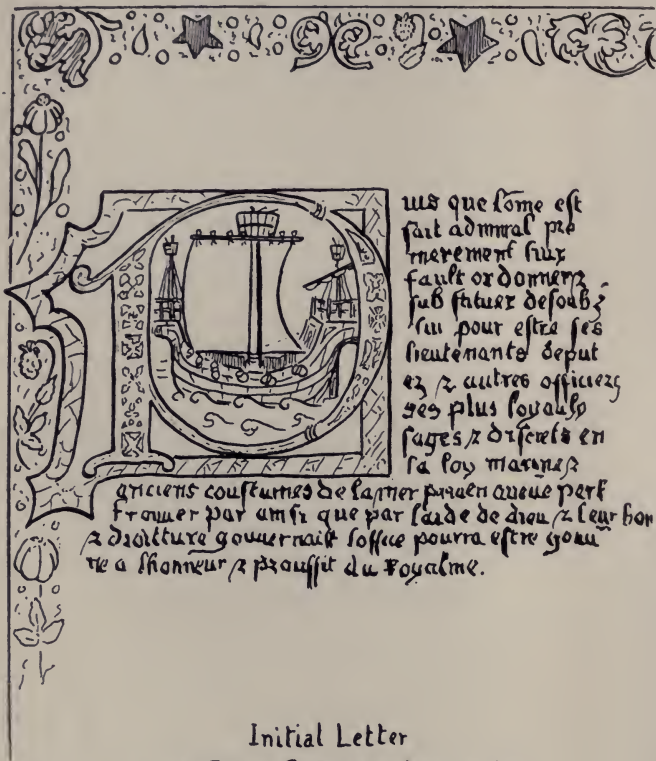 uis que lōme est
fait admiral pre
merement luy
fault ordonner ⁊
substituer desoubz
lui pour estre ses
lieutenants deput
ez ⁊ autres officiers
ges plus loyaulx
sages ⁊ discrets en
la loy marine ⁊
anciens coustumes de la mer
par ainsi que par laide de dieu ⁊ leur bon
⁊ droitture loffice pourra estre
ne a lhonneur ⁊ prouffit du Royalme.
Initial Letter